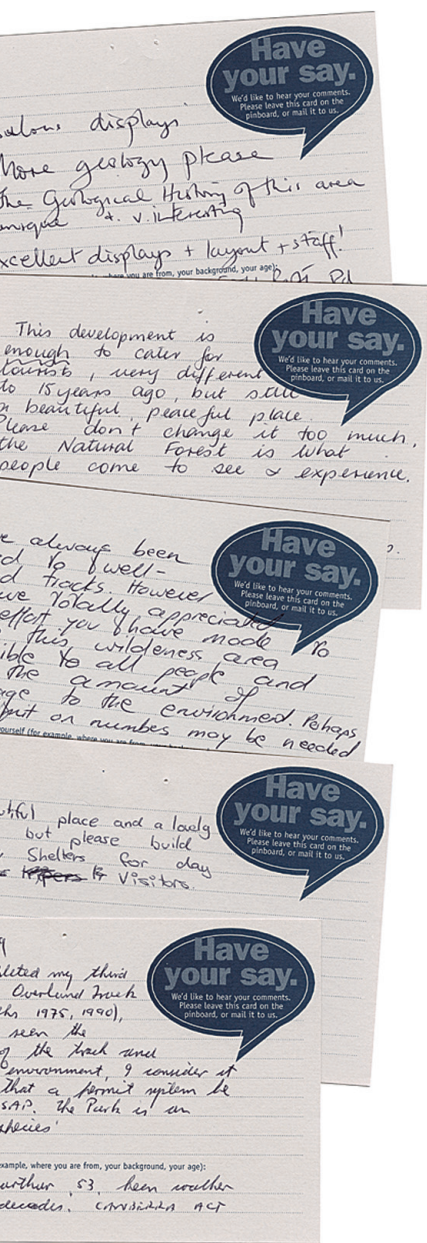 Have
your say.
We'd like to hear your comments.
Please leave this card on the
pinboard, or mail it to us.
displays
More geology please
The Geological History of this area
+ v. interesting
displays + layout + staff!
where you are from, your background, your age):
Have
your say.
We'd like to hear your comments.
Please leave this card on the
pinboard, or mail it to us.
This development is
enough to cater for
tourists, very different
to 15 years ago, but still
a beautiful, peaceful place.
Please don't change it too much,
the Natural Forest is what
people come to see & experience.
Have
your say.
We'd like to hear your comments.
Please leave this card on the
pinboard, or mail it to us.
always been
to well-
tracks. However
totally appreciated
effort you have made to
this wilderness area
to all people and
the amount of
to the enviorment. Perhaps
on numbes may be needed
yourself (for example, where you are from,
Have
your say.
We'd like to hear your comments.
Please leave this card on the
pinboard, or mail it to us.
place and a lovely
but please build
Shelters for day
Visitors.
Have
your say.
We'd like to hear your comments.
Please leave this card on the
pinboard, or mail it to us.
my third
Overland Track
1975, 1990),
seen the
of the track and
environment, I consider it
that a permit system be
ASAP. The Park is an
example, where you are from, your background, your age):
53, keen walker
decades. CANBERRA ACT